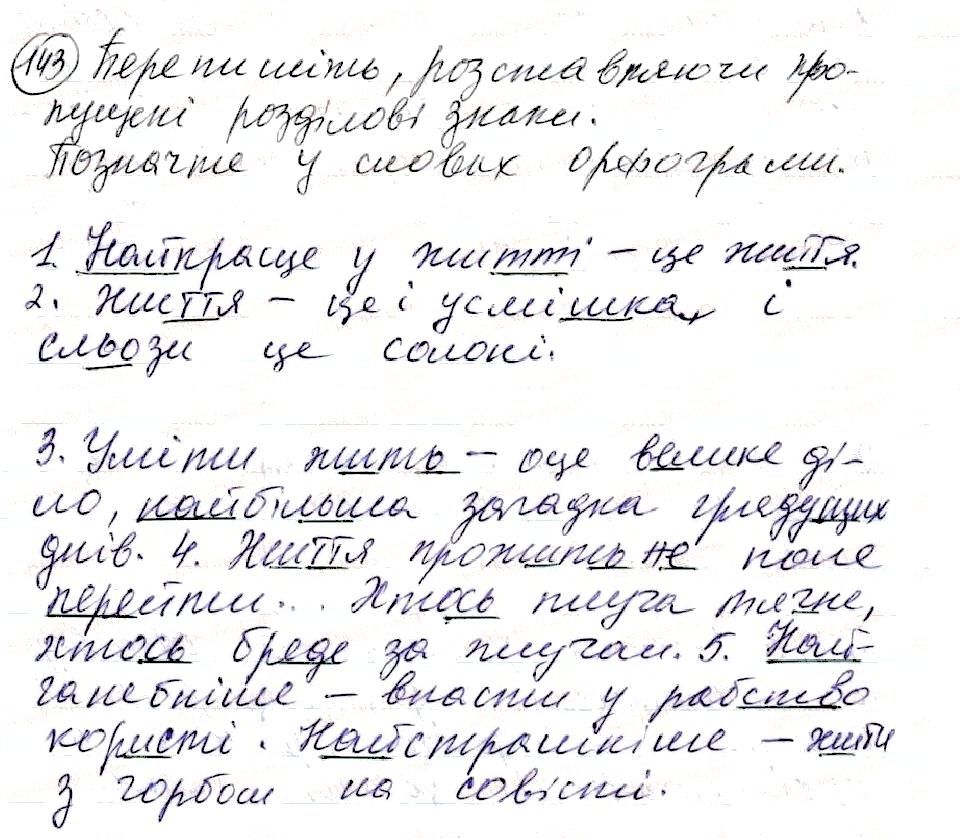 143 Перепишіть, розставляючи про-
пущені розділові знаки.
Позначте у словах орфограми.
1. Найкраще у житті – це життя.
2. Життя – це і усмішка, і
сльози це солоні.
3. Уміти жить – оце велике ді-
ло, найбільша загадка грядущих
днів. 4. Життя прожить не поле
перейти... Хтось плуга тягне,
хтось бреде за плугом. 5. Най-
ганебніше – впасти у рабство
користі. Найстрашніше – жити
з горбом на совісті.